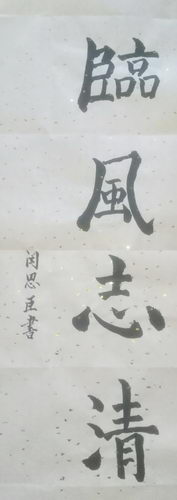 臨風志清
闵思臣書